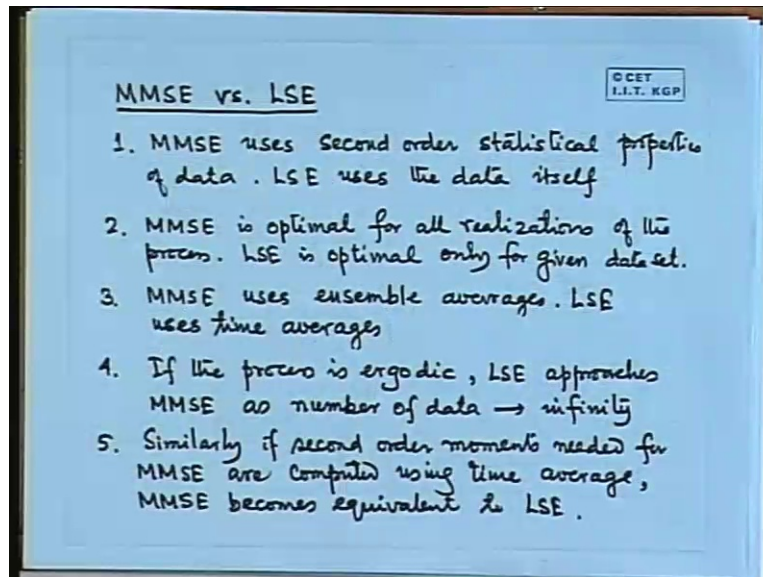 MMSE vs. LSE
© CET
I.I.T. KGP
1. MMSE uses second order statistical properties
of data. LSE uses the data itself
2. MMSE is optimal for all realizations of the
process. LSE is optimal only for given data set.
3. MMSE uses ensemble averages. LSE
uses time averages
4. If the process is ergodic, LSE approaches
MMSE as number of data → infinity
5. Similarly if second order moments needed for
MMSE are computed using time average,
MMSE becomes equivalent to LSE.